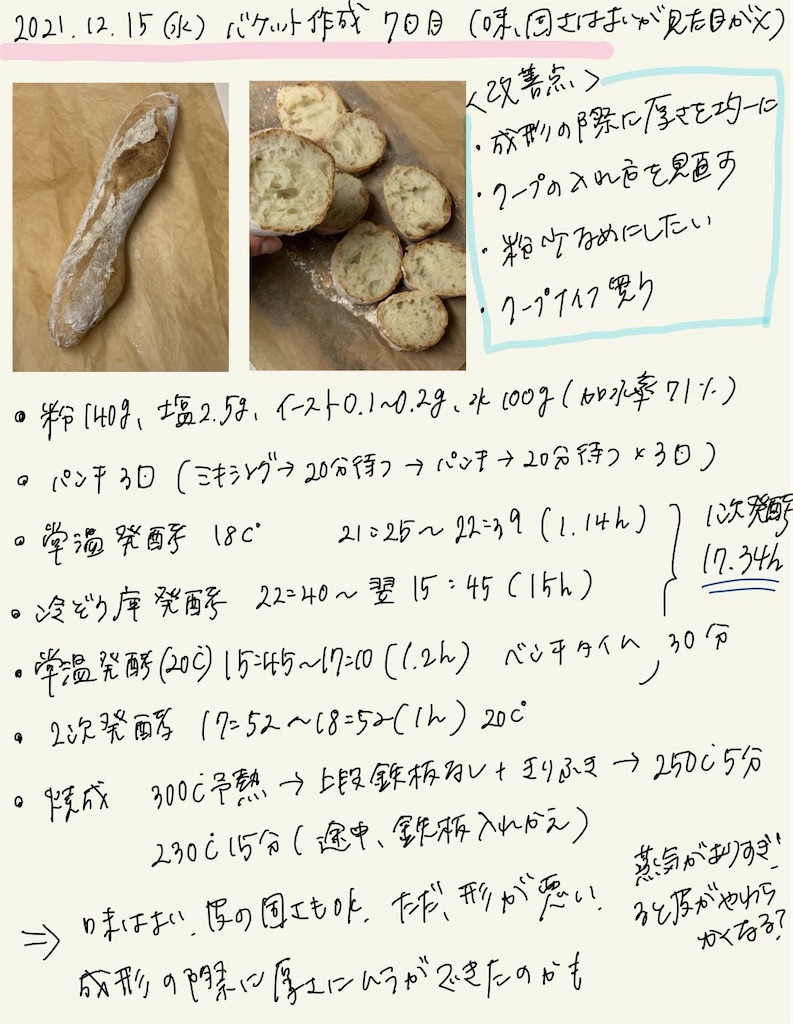 2021.12.15(水) バケット作成 7日目 (味、固さはよいが見た目が×)
<改善点>
・成形の際に厚さを均一に
・クープの入れ方を見直す
・粉少なめにしたい
・クープナイフ買う
• 粉140g、塩2.5g、イースト0.1~0.2g、水100g(加水率71%)
• パンチ3回 (ミキシング→20分待つ→パンチ→20分待つ×3回)
• 常温発酵 18C° 21:25~22:39 (1.14h)
1次発酵
17.34h
• 冷ぞう庫発酵 22:40~翌15:45 (15h)
• 常温発酵(20℃) 15:45~17:10 (1.2h) ベンチタイム 30分
• 2次発酵 17:52~18:52(1h) 20C°
• 焼成 300℃予熱→上段鉄板なし+きりふき→250℃5分
230℃15分(途中、鉄板入れかえ)
⇒ 味はよい、皮の固さもok. ただ、形が悪い.
成形の際に厚さにムラができたのかも
蒸気がありすぎ
ると皮がやわら
かくなる?